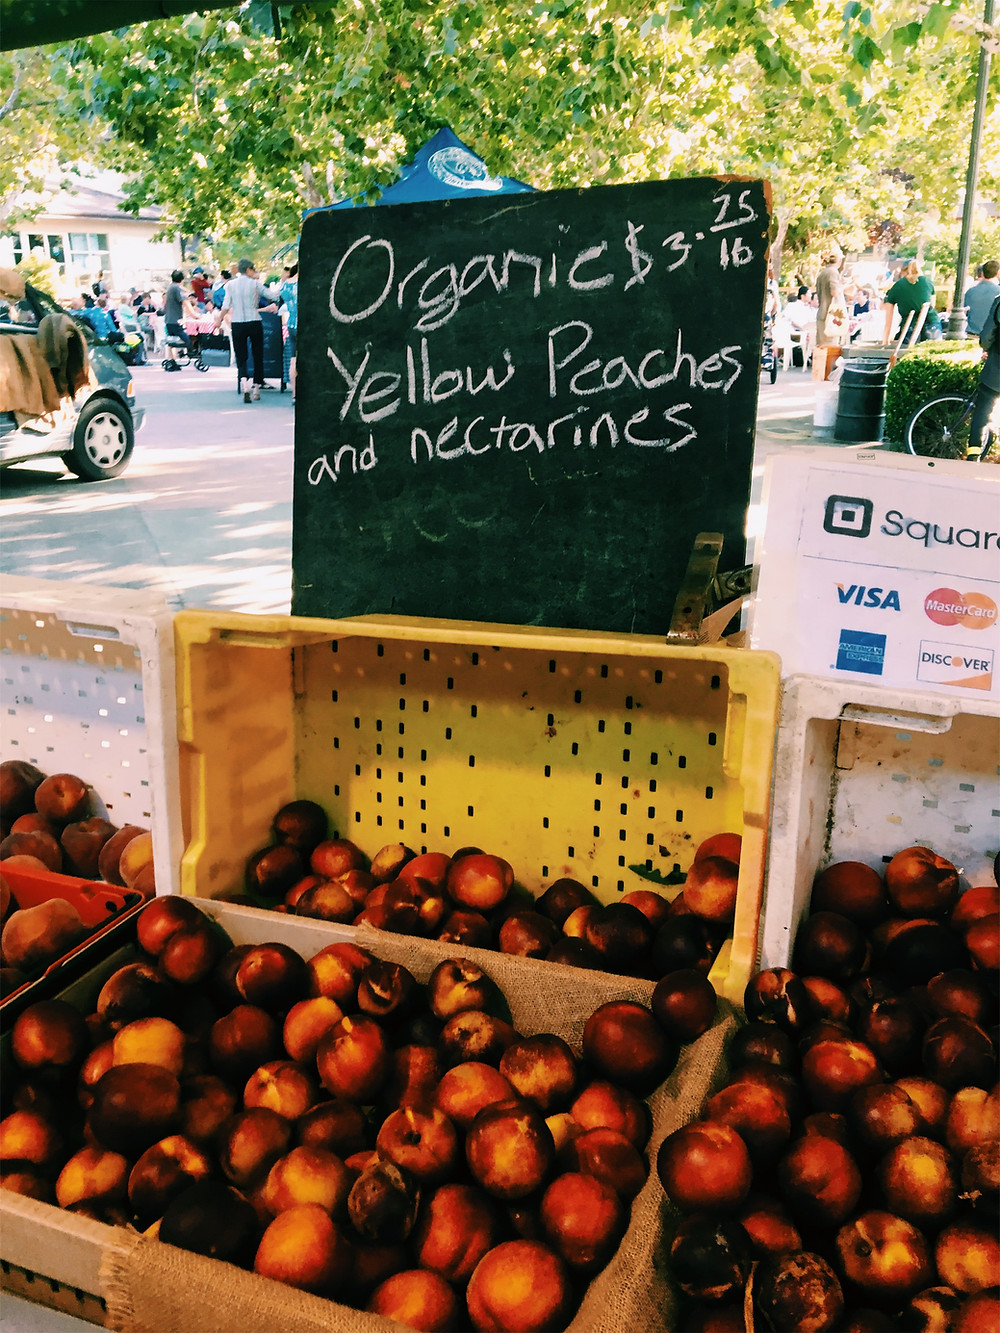 Organic $3.25/lb
Yellow Peaches
and nectarines
Square
VISA
MasterCard
AMERICAN EXPRESS
DISCOVER